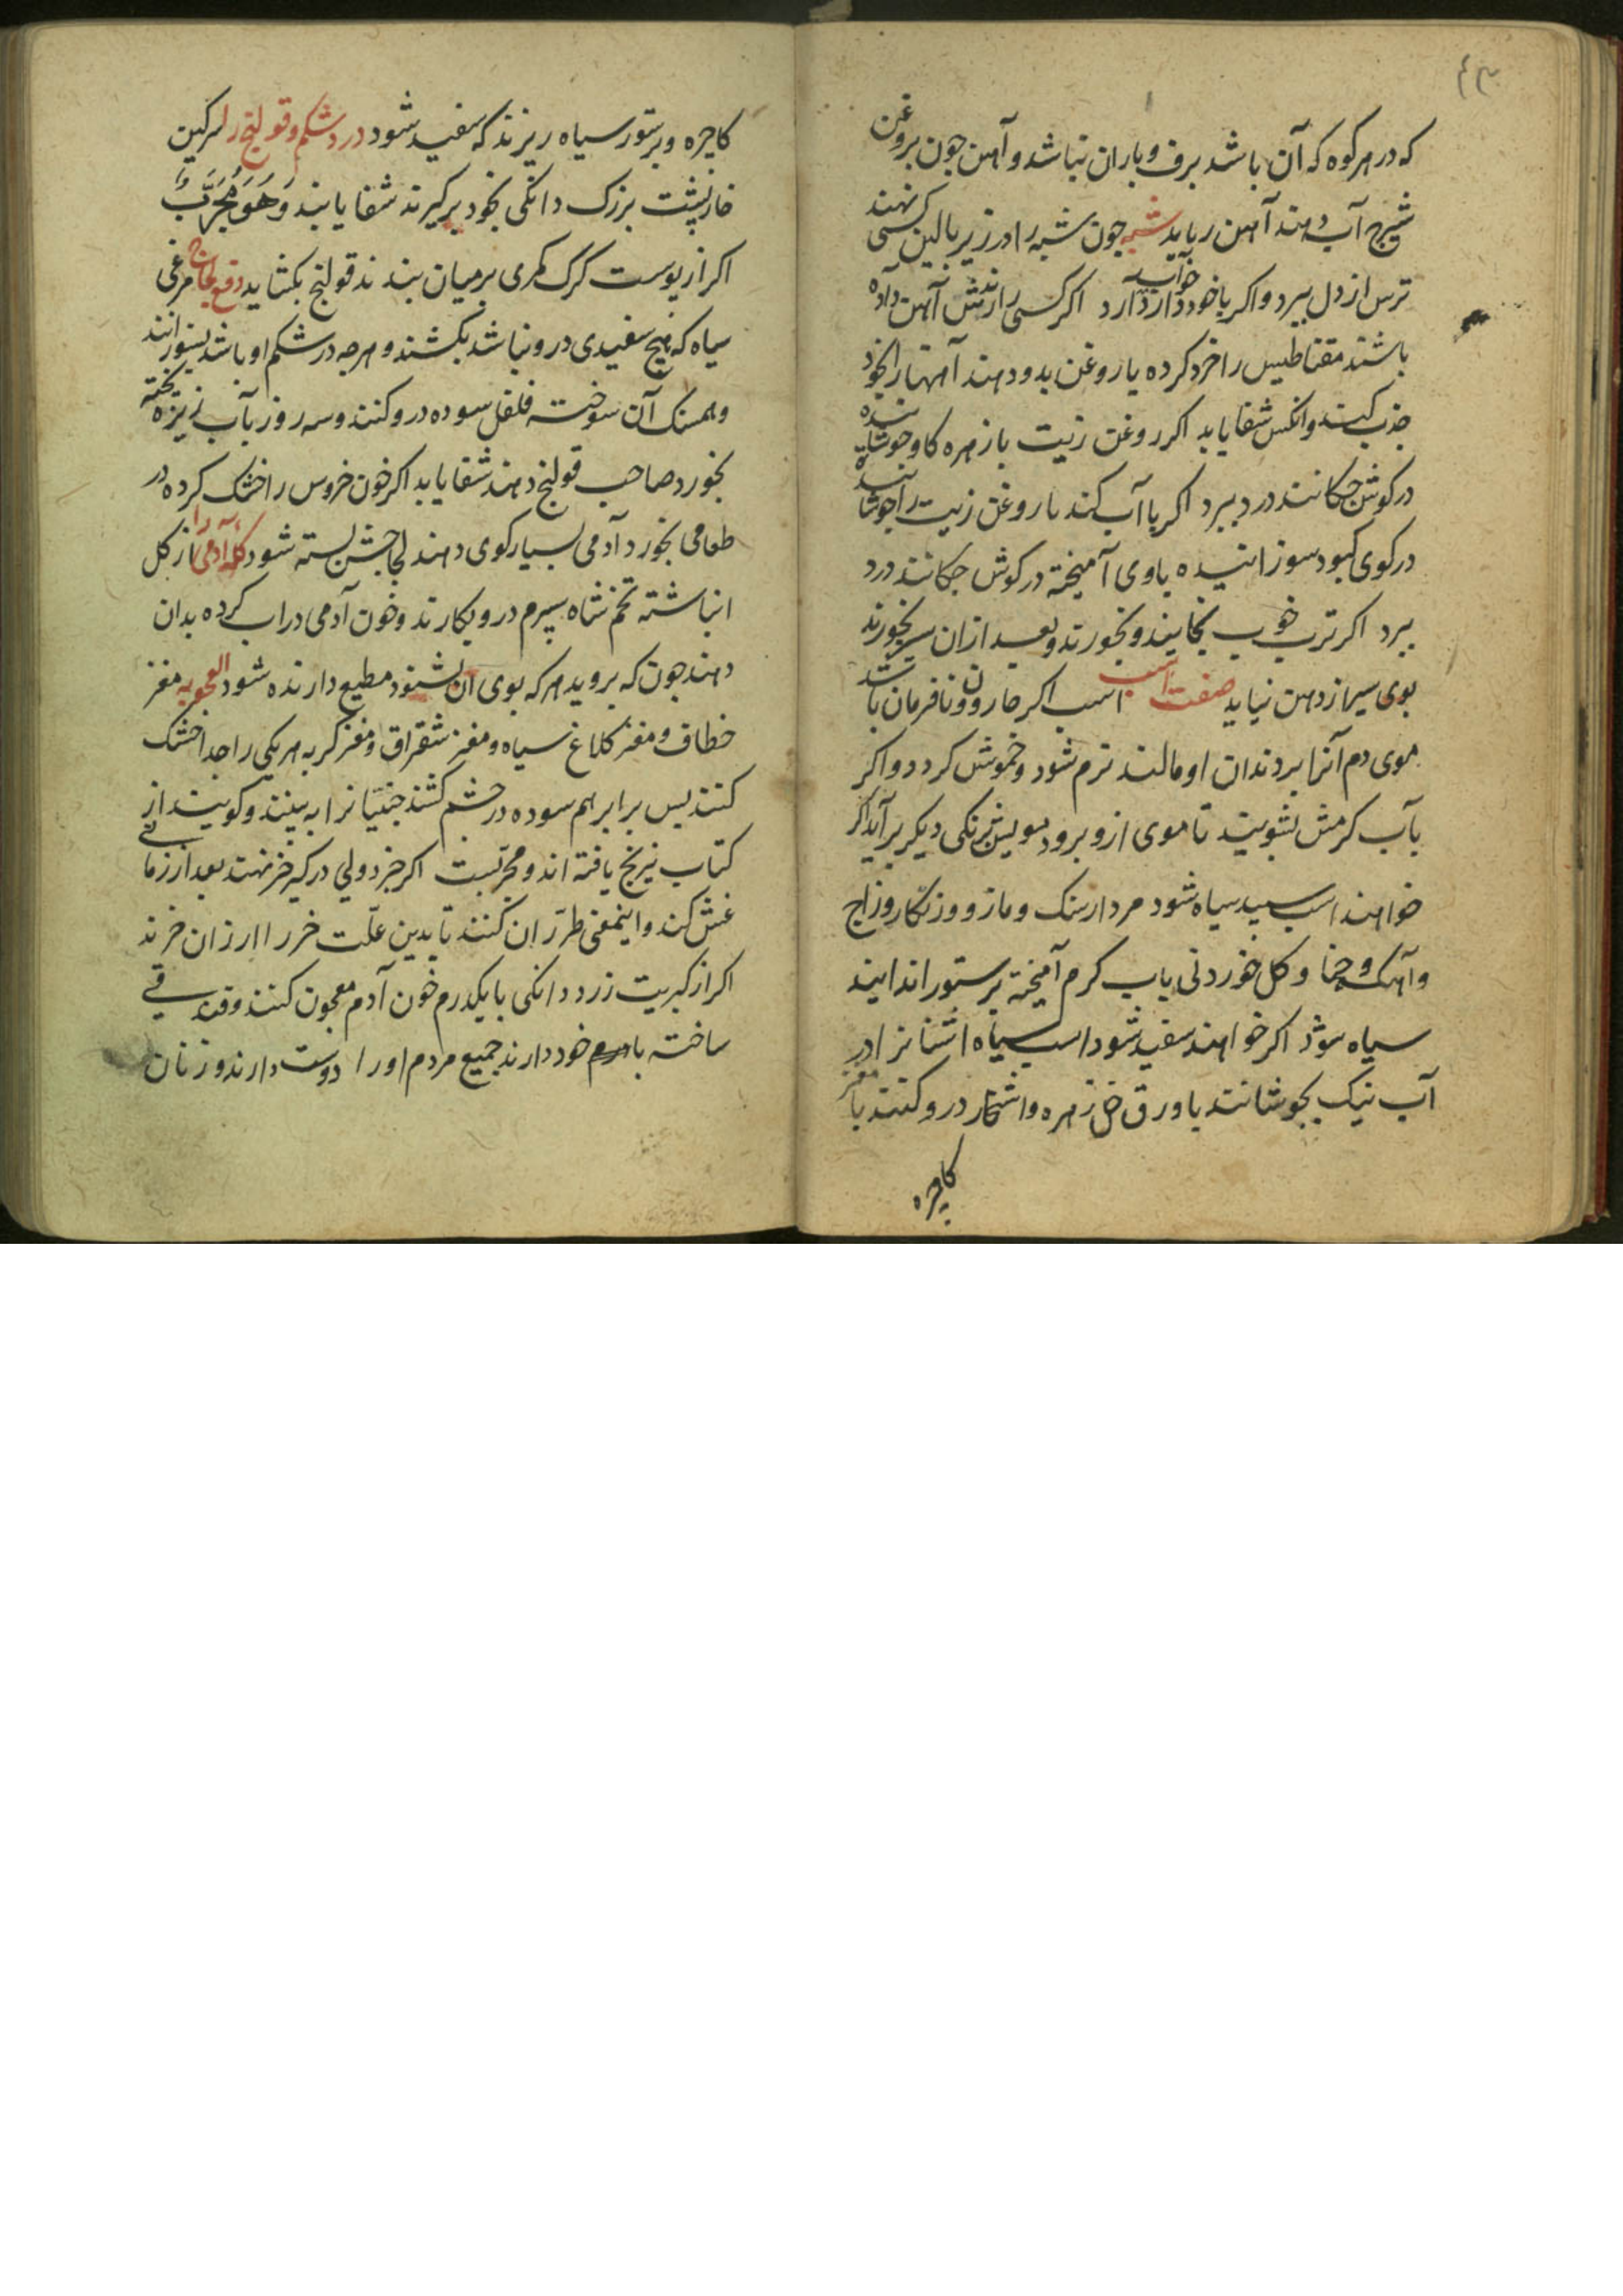 ٤٣
که در هر کوه که آن باشد برف و باران نباشد و آهن جون بروغن
شیرج آب دهند آهن رباید شبه جون شبه را در زیر بالین کسی نهند
ترس از دل ببرد و اکر با خود دارد خواب آرد اکر کسی را آهن داده
باشند مقناطیس را خرد کرده با روغن بدو دهند آهنها را بخود
جذب کند و انکس شفا یابد اکر روغن زیت با زهره کاو جوشانیده
در کوش چکانند درد ببرد اکر با آب کند با روغن زیت را جوشانیده
در کوی کبود سوزانیده باوی آمیخته در کوش چکانند درد
ببرد اکر ترب خوب بخایند و بخورند و بعد از ان سیر بخورند
بوی سیر از دهن نیاید صفت اسب اسب اکر حارون و نافرمان باشد
موی دم آنرا بر دندان او مالند نرم شود و خموش کردد و اکر
بآب کرمش بشویند تا موی ازو برود مویش برنکی دیکر برآید اکر
خواهند اسب سپید سیاه شود مردارسنک و مازو و زنکار و زاج
و آهک و حنا و کل خوردنی بآب کرم آمیخته بر ستور اندایند
سیاه شود اکر خواهند سفید شود اسب سیاه اشنانرا در
آب نیک بجوشانند با ورق خر زهره و اشخار درو کنند با مغز
کاجره
کاجره و بر ستور سیاه ریزند که سفید شود درد شکم و قولنج را سرکین
خارپشت بزرک دانکی بخود برکیرند شفا یابند وَهُوَ مُجَرَّبٌ
اکر از پوست کرک کمری بر میان بندند قولنج بکشاید مرغی
سیاه که هیچ سفیدی درو نباشد بکشند و هرجه در شکم او باشد بسوزانند
و همسنک آن سوخته فلفل سوده درو کنند و سه روز بآب زیره پخته
بخورد صاحب قولنج دهند شفا یابد اکر خون خروس را خشک کرده در
طعامی بخورد آدمی بسیار کوی دهند شود کله آدمی را از کل
انباشته تخم شاه سپرم درو بکارند و خون آدمی در آب کرده بدان
دهند جون که بروید هر که بوی آن بشنود مطیع دارنده شود اعجوبه مغز
خطاف و مغز کلاغ سیاه و مغز شقراق و مغز کربه هر یکی را جدا خشک
کنند پس برابر هم سوده در چشم کشند جنّیانرا به بینند و کویند از
کتاب نیرنج یافته اند و مجرّبست اکر خردولی در کیر خر نهند بعد از زمانی
غش کند و اینمعنی طرّاران کنند تا بدین علّت خر را ارزان خرند
اکر از کبریت زرد دانکی با یکدرم خون آدم معجون کنند و قندقی
ساخته با خود دارند جمیع مردم او را دوست دارند و زنان